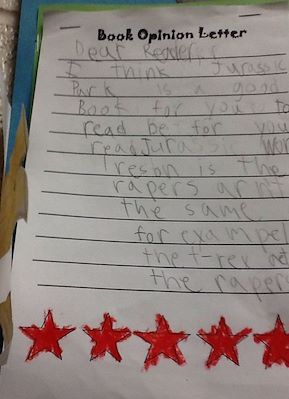 Book Opinion Letter
Dear Reader,
I think Jurassic
Park is a good
Book for you to
read be for you
read Jurassic Wor
reson is the
rapers arnt
the same
for exampel
the t-rex
the rapers